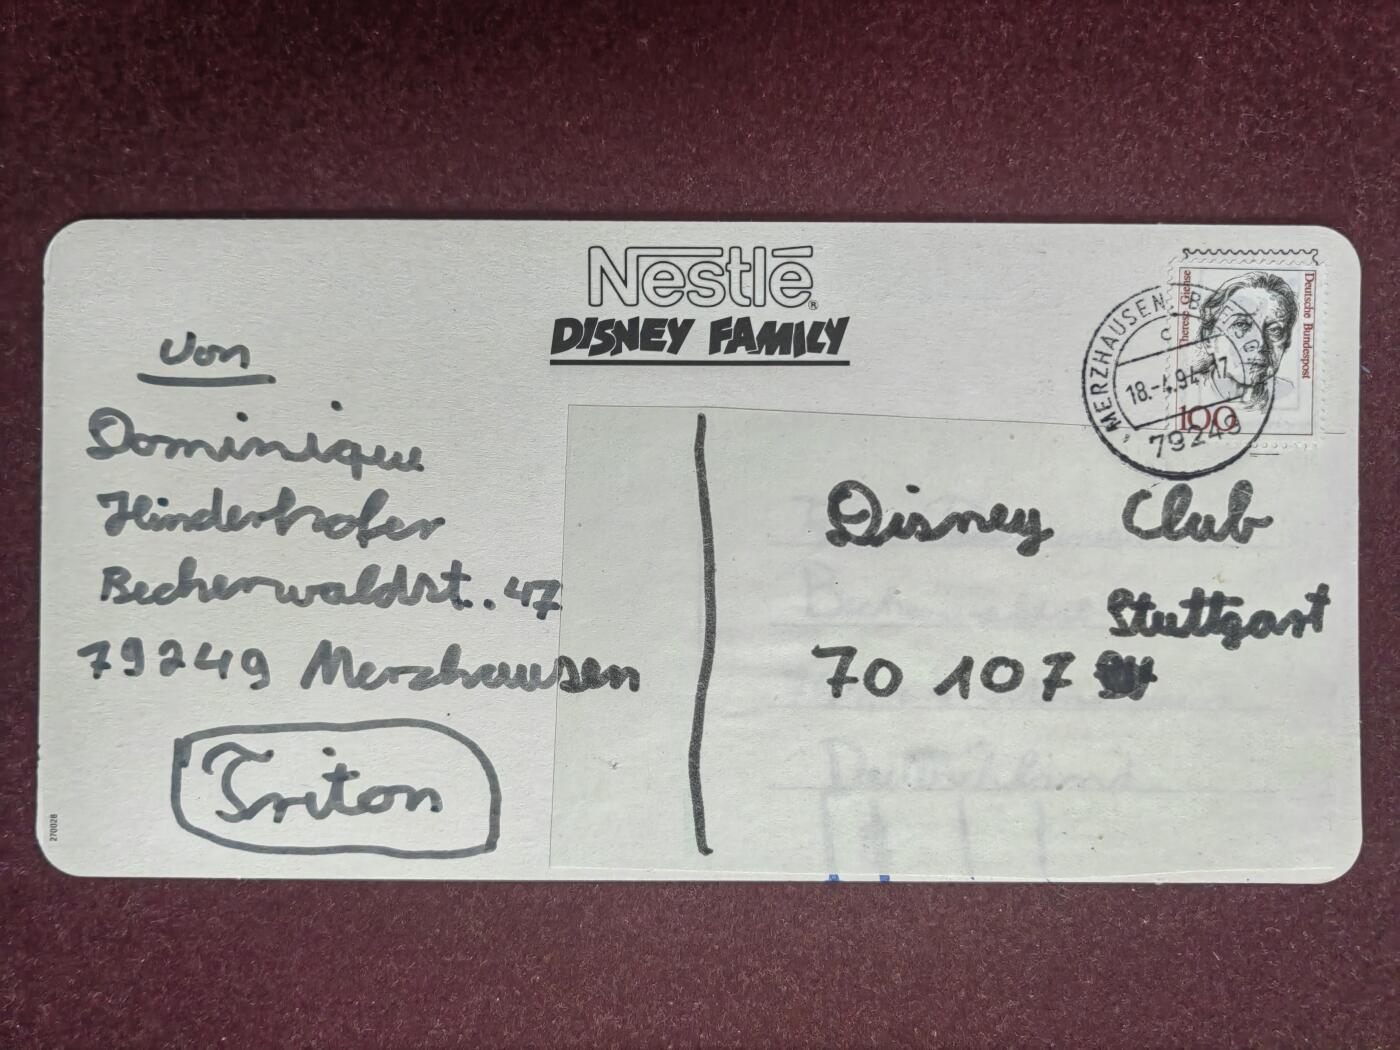 Nestlé®
DISNEY FAMILY
Deutsche Bundespost
Therese Giehse
100
MERZHAUSEN, BREISGAU
c
18.-4.94-17
79249
von
Dominique
Hinderhofer
Becherwaldst. 47
79249 Merzhausen
Triton
Disney Club
Stuttgart
70 107
Deutschland
270028